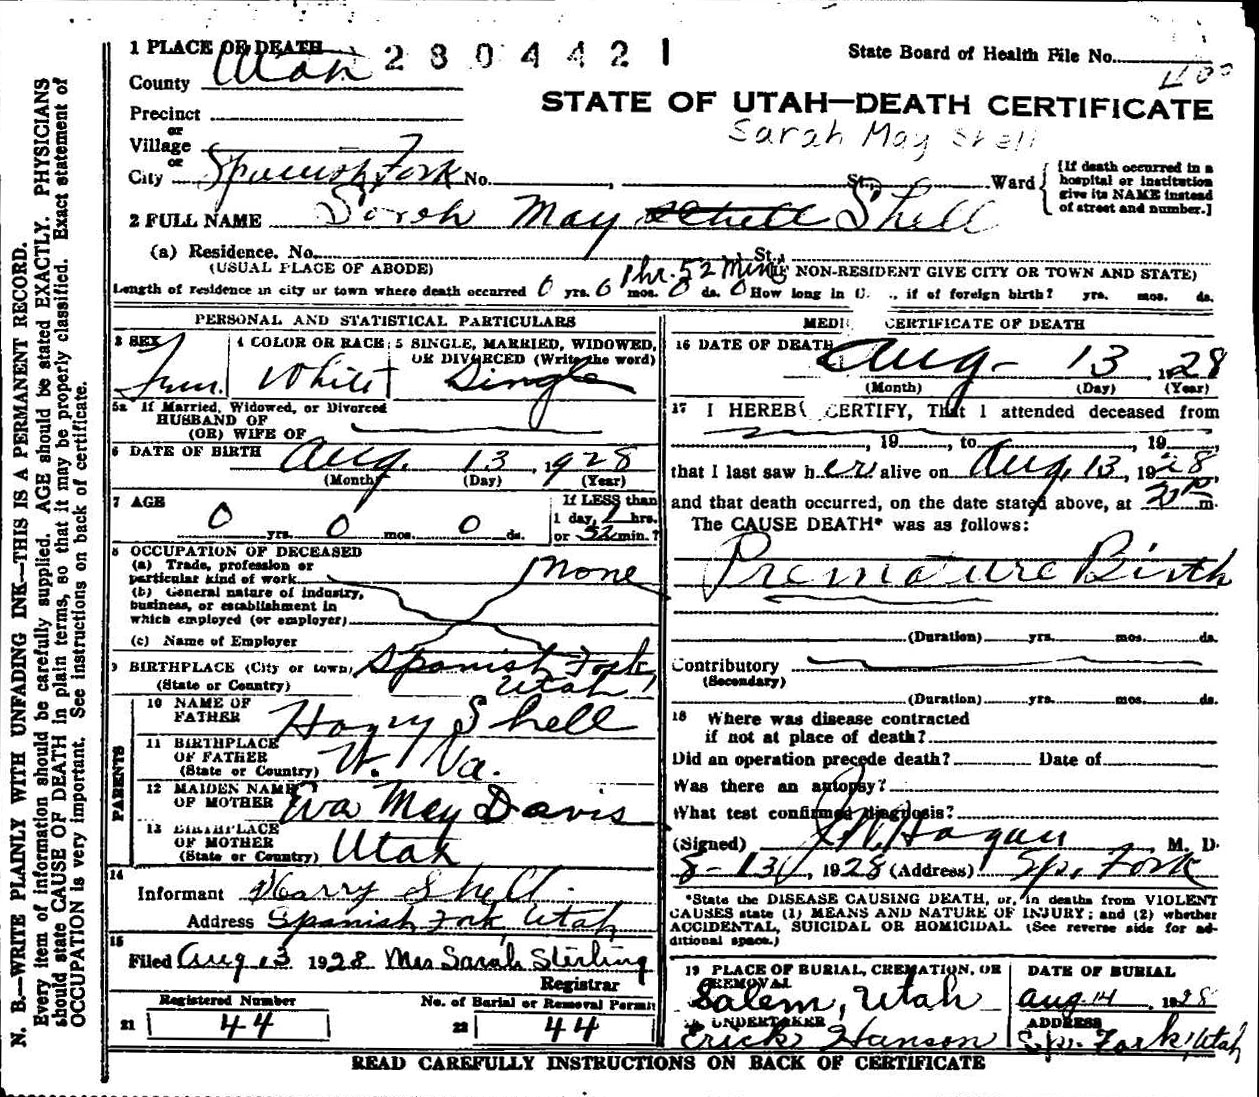 1 PLACE OF DEATH
2 8 0 4 4 2 1
State Board of Health File No.
County Utah
400
Precinct
STATE OF UTAH—DEATH CERTIFICATE
or
Sarah May Shell
Village
or
City Spanish Fork No. , St., Ward
[If death occurred in a
hospital or institution
give its NAME instead
of street and number.]
2 FULL NAME Sarah May Schell Shell
(a) Residence. No. St.,
(USUAL PLACE OF ABODE)
1 hr. 52 Min.
NON-RESIDENT GIVE CITY OR TOWN AND STATE)
Length of residence in city or town where death occurred 0 yrs. 0 mos. 0 ds. 0 How long in U. ., if of foreign birth? yrs. mos. ds.
PERSONAL AND STATISTICAL PARTICULARS
3 SEX
4 COLOR OR RACE
5 SINGLE, MARRIED, WIDOWED,
OR DIVORCED (Write the word)
Fem. White Single
5a If Married, Widowed, or Divorced
HUSBAND OF
(OR) WIFE OF
6 DATE OF BIRTH Aug. 13, 1928
(Month) (Day) (Year)
7 AGE
If LESS than
0 yrs. 0 mos. 0 ds.
1 day, 1 hrs.
or 52 min.?
8 OCCUPATION OF DECEASED
(a) Trade, profession or
particular kind of work None
(b) General nature of industry,
business, or establishment in
which employed (or employer)
(c) Name of Employer
9 BIRTHPLACE (City or town) Spanish Fork,
(State or Country) Utah
PARENTS
10 NAME OF
FATHER Harry Shell
11 BIRTHPLACE
OF FATHER
(State or Country) W. Va.
12 MAIDEN NAME
OF MOTHER Eva May Davis
13 BIRTHPLACE
OF MOTHER
(State or Country) Utah
14
Informant Harry Shell
Address Spanish Fork, Utah
15
Filed Aug 13 1928 Mrs Sarah Sterling
Registrar
Registered Number
No. of Burial or Removal Permit
21 44
22 44
MEDI CERTIFICATE OF DEATH
16 DATE OF DEATH Aug. 13, 1928
(Month) (Day) (Year)
17 I HEREB CERTIFY, That I attended deceased from
, 19 , to , 19 ,
that I last saw her alive on Aug. 13, 1928
and that death occurred, on the date stated above, at m.
The CAUSE DEATH* was as follows:
Premature Birth
(Duration) yrs. mos. ds.
Contributory
(Secondary)
(Duration) yrs. mos. ds.
18 Where was disease contracted
if not at place of death?
Did an operation precede death? Date of
Was there an autopsy?
What test confirmed diagnosis?
(Signed) Hagan M. D.
8-13, 1928 (Address) Sp. Fork
*State the DISEASE CAUSING DEATH, or, in deaths from VIOLENT
CAUSES state (1) MEANS AND NATURE OF INJURY; and (2) whether
ACCIDENTAL, SUICIDAL OR HOMICIDAL. (See reverse side for ad-
ditional space.)
19 PLACE OF BURIAL, CREMATION, OR
REMOVAL
Salem, Utah
DATE OF BURIAL
Aug 14 1928
UNDERTAKER
Erick Hanson
ADDRESS
Sp. Fork, Utah
READ CAREFULLY INSTRUCTIONS ON BACK OF CERTIFICATE
N. B.—WRITE PLAINLY WITH UNFADING INK—THIS IS A PERMANENT RECORD.
Every item of information should be carefully supplied. AGE should be stated EXACTLY. PHYSICIANS
should state CAUSE OF DEATH in plain terms, so that it may be properly classified. Exact statement of
OCCUPATION is very important. See instructions on back of certificate.